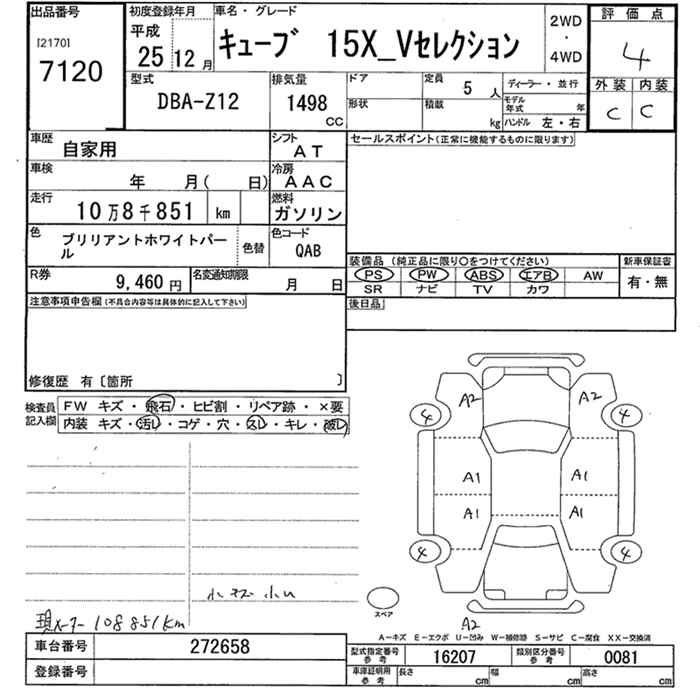 出品番号
[2170]
7120
初度登録年月
平成
25 12 月
車名・グレード
キューブ 15X_Vセレクション
2WD
・
4WD
評価点
4
外装 内装
C C
型式
DBA-Z12
排気量
1498
CC
ドア
形状
定員
5 人
積載
kg
ディーラー・並行
モデル年式 年
ハンドル 左・右
車歴
自家用
シフト
AT
車検
年 月( 日)
冷房
AAC
走行
10万8千851 km
燃料
ガソリン
色
ブリリアントホワイトパール
色替
色コード
QAB
R券
9,460 円
名変通知期限
月 日
セールスポイント(正常に機能するものに限ります)
装備品 (純正品に限り〇をつけてください)
PS PW ABS エアB AW
SR ナビ TV カワ
新車保証書
有・無
後日品
注意事項申告欄(不具合内容等は具体的に記入して下さい)
修復歴 有〔箇所 〕
検査員記入欄
FW キズ・飛石・ヒビ割・リペア跡・×要
内装 キズ・汚レ・コゲ・穴・スレ・キレ・破レ
A2 A2
4 4
A1 A1
A1 A1
4 4
スペア
A2
現メーター 108851km
A−キズ E−エクボ U−凹み W−補修跡 S−サビ C−腐食 XX−交換済
車台番号 272658
登録番号
型式指定番号 参考 16207
類別区分番号 参考 0081
車庫証明用 参考
長さ cm
幅 cm
高さ cm